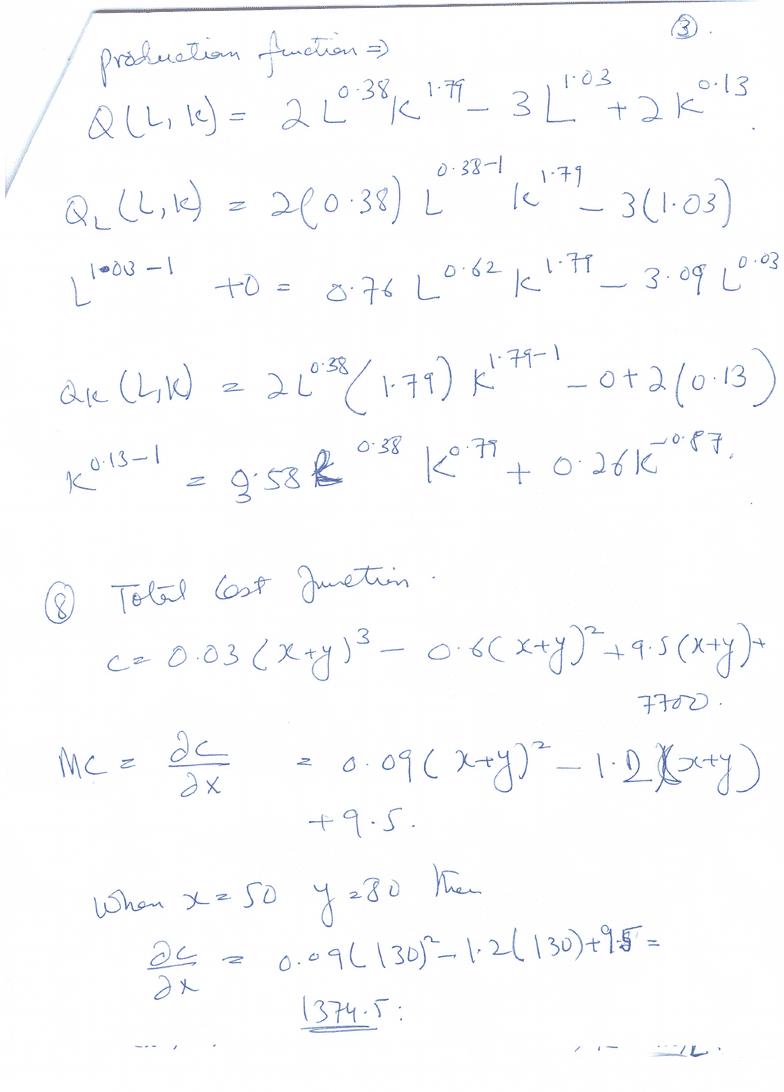 ③.
production function ⇒
Q(L, K) = 2 L^0.38 K^1.79 − 3 L^1.03 + 2 K^0.13
Q_L (L, K) = 2(0.38) L^0.38−1 K^1.79 − 3(1.03)
L^1.03−1 + 0 = 0.76 L^0.62 K^1.79 − 3.09 L^0.03
Q_K (L, K) = 2 L^0.38 (1.79) K^1.79−1 − 0 + 2(0.13)
K^0.13−1 = 3.58 ^0.38 K^0.79 + 0.26 K^−0.87.
⑧ Total Cost function.
C = 0.03 (x+y)^3 − 0.6 (x+y)^2 + 9.5 (x+y) +
7700.
MC = ∂C/∂x = 0.09 (x+y)^2 − 1.2 (x+y)
+ 9.5.
When x = 50 y = 80 then
∂C/∂x = 0.09 (130)^2 − 1.2 (130) + 9.5 =
1374.5: